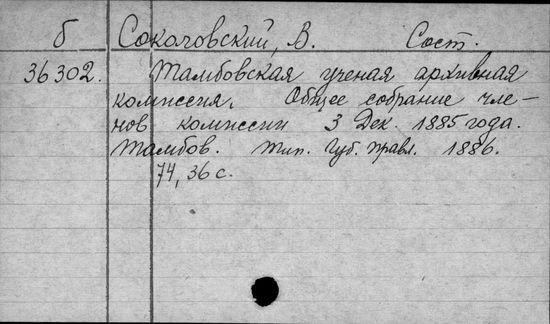 б Соколовский, В. Сост.
36302. Тамбовская ученая архивная
комиссия. Общее собрание чле-
нов комиссии 3 Дек. 1885 года.
Тамбов. Тип. Губ. Правл. 1886.
74, 36 с.